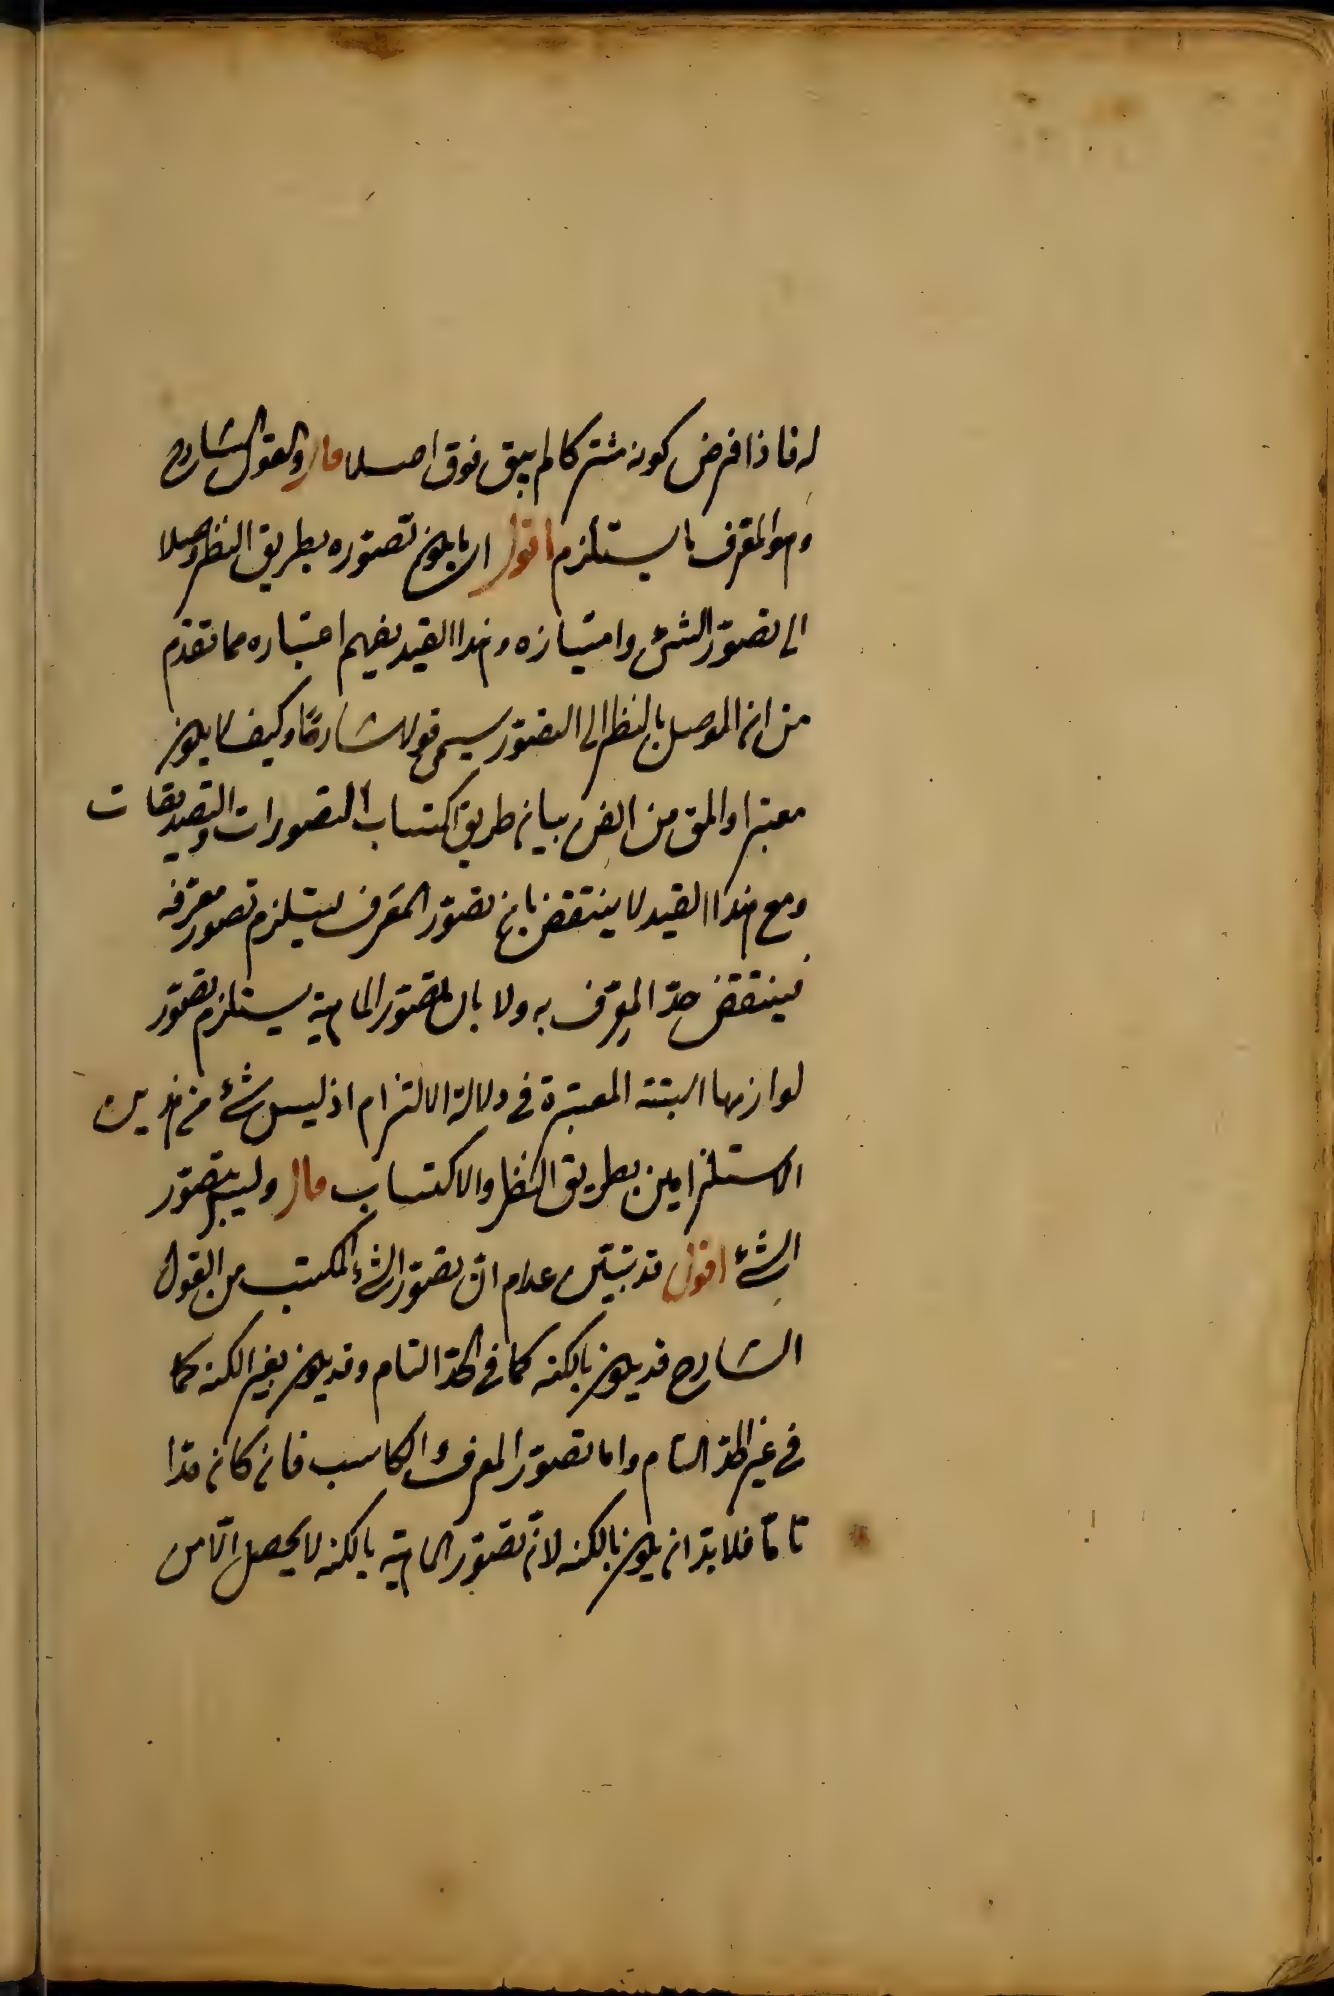 له فاذا فرض كونه مشتركا لم يبق فوق اصلا قال والقول الشارح
وهو المعرف ما يستلزم اقول اى ما يكون تصوره بطريق النظر موصلا
الى تصوّر الشئ وامتيازه وهذا القيد يفهم اعتباره مما تقدم
من ان الموصل بالنظر الى التصوّر يسمى قولا شارحًا وكيف لا يكون
معتبرا والمق من الفن بيان طريق اكتساب التصورات والتصديقات
ومع هذا القيد لا ينتقض بان تصوّر المعَرف يستلزم تصور معرّفه
فينتقض حدّ المعِرّف به ولا بان تصوّر الماهية يستلزم تصوّر
لوازمها البينة المعتبرة فى دلالة الالتزام اذ ليس شئ من هذين
الاستلزامين بطريق النظر والاكتساب قال وليس تصوّر
الشئ اقول قد تبيّن ان تصوّر الشئ المكتسب من القول
الشارح قد يكون بالكنه كما فى الحدّ التام وقد يكون بغير الكنه كما
فى غير الحدّ التام واما تصوّر المعرف الكاسب فان كان حدّا
تامّا فلا بدّ ان يكون بالكنه لانّ تصوّر الماهية بالكنه لا يحصل الّا من